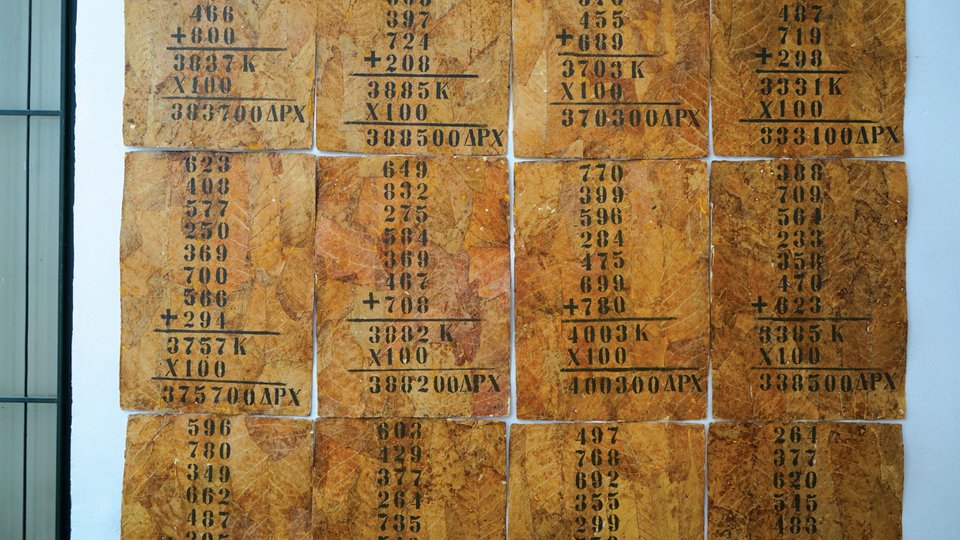 466
+800
3837 K
X100
383700 ΔΡΧ
397
724
+208
3885 K
X100
388500 ΔΡΧ
455
+689
3703 K
X100
370300 ΔΡΧ
487
719
+298
3331 K
X100
333100 ΔΡΧ
623
408
577
250
369
700
566
+294
3757 K
X100
375700 ΔΡΧ
649
832
275
584
369
467
+708
3882 K
X100
388200 ΔΡΧ
770
399
596
284
475
699
+780
4003 K
X100
400300 ΔΡΧ
388
709
564
233
358
470
+623
3385 K
X100
338500 ΔΡΧ
596
780
349
662
487
603
429
377
264
735
497
768
692
355
299
264
377
620
545
483